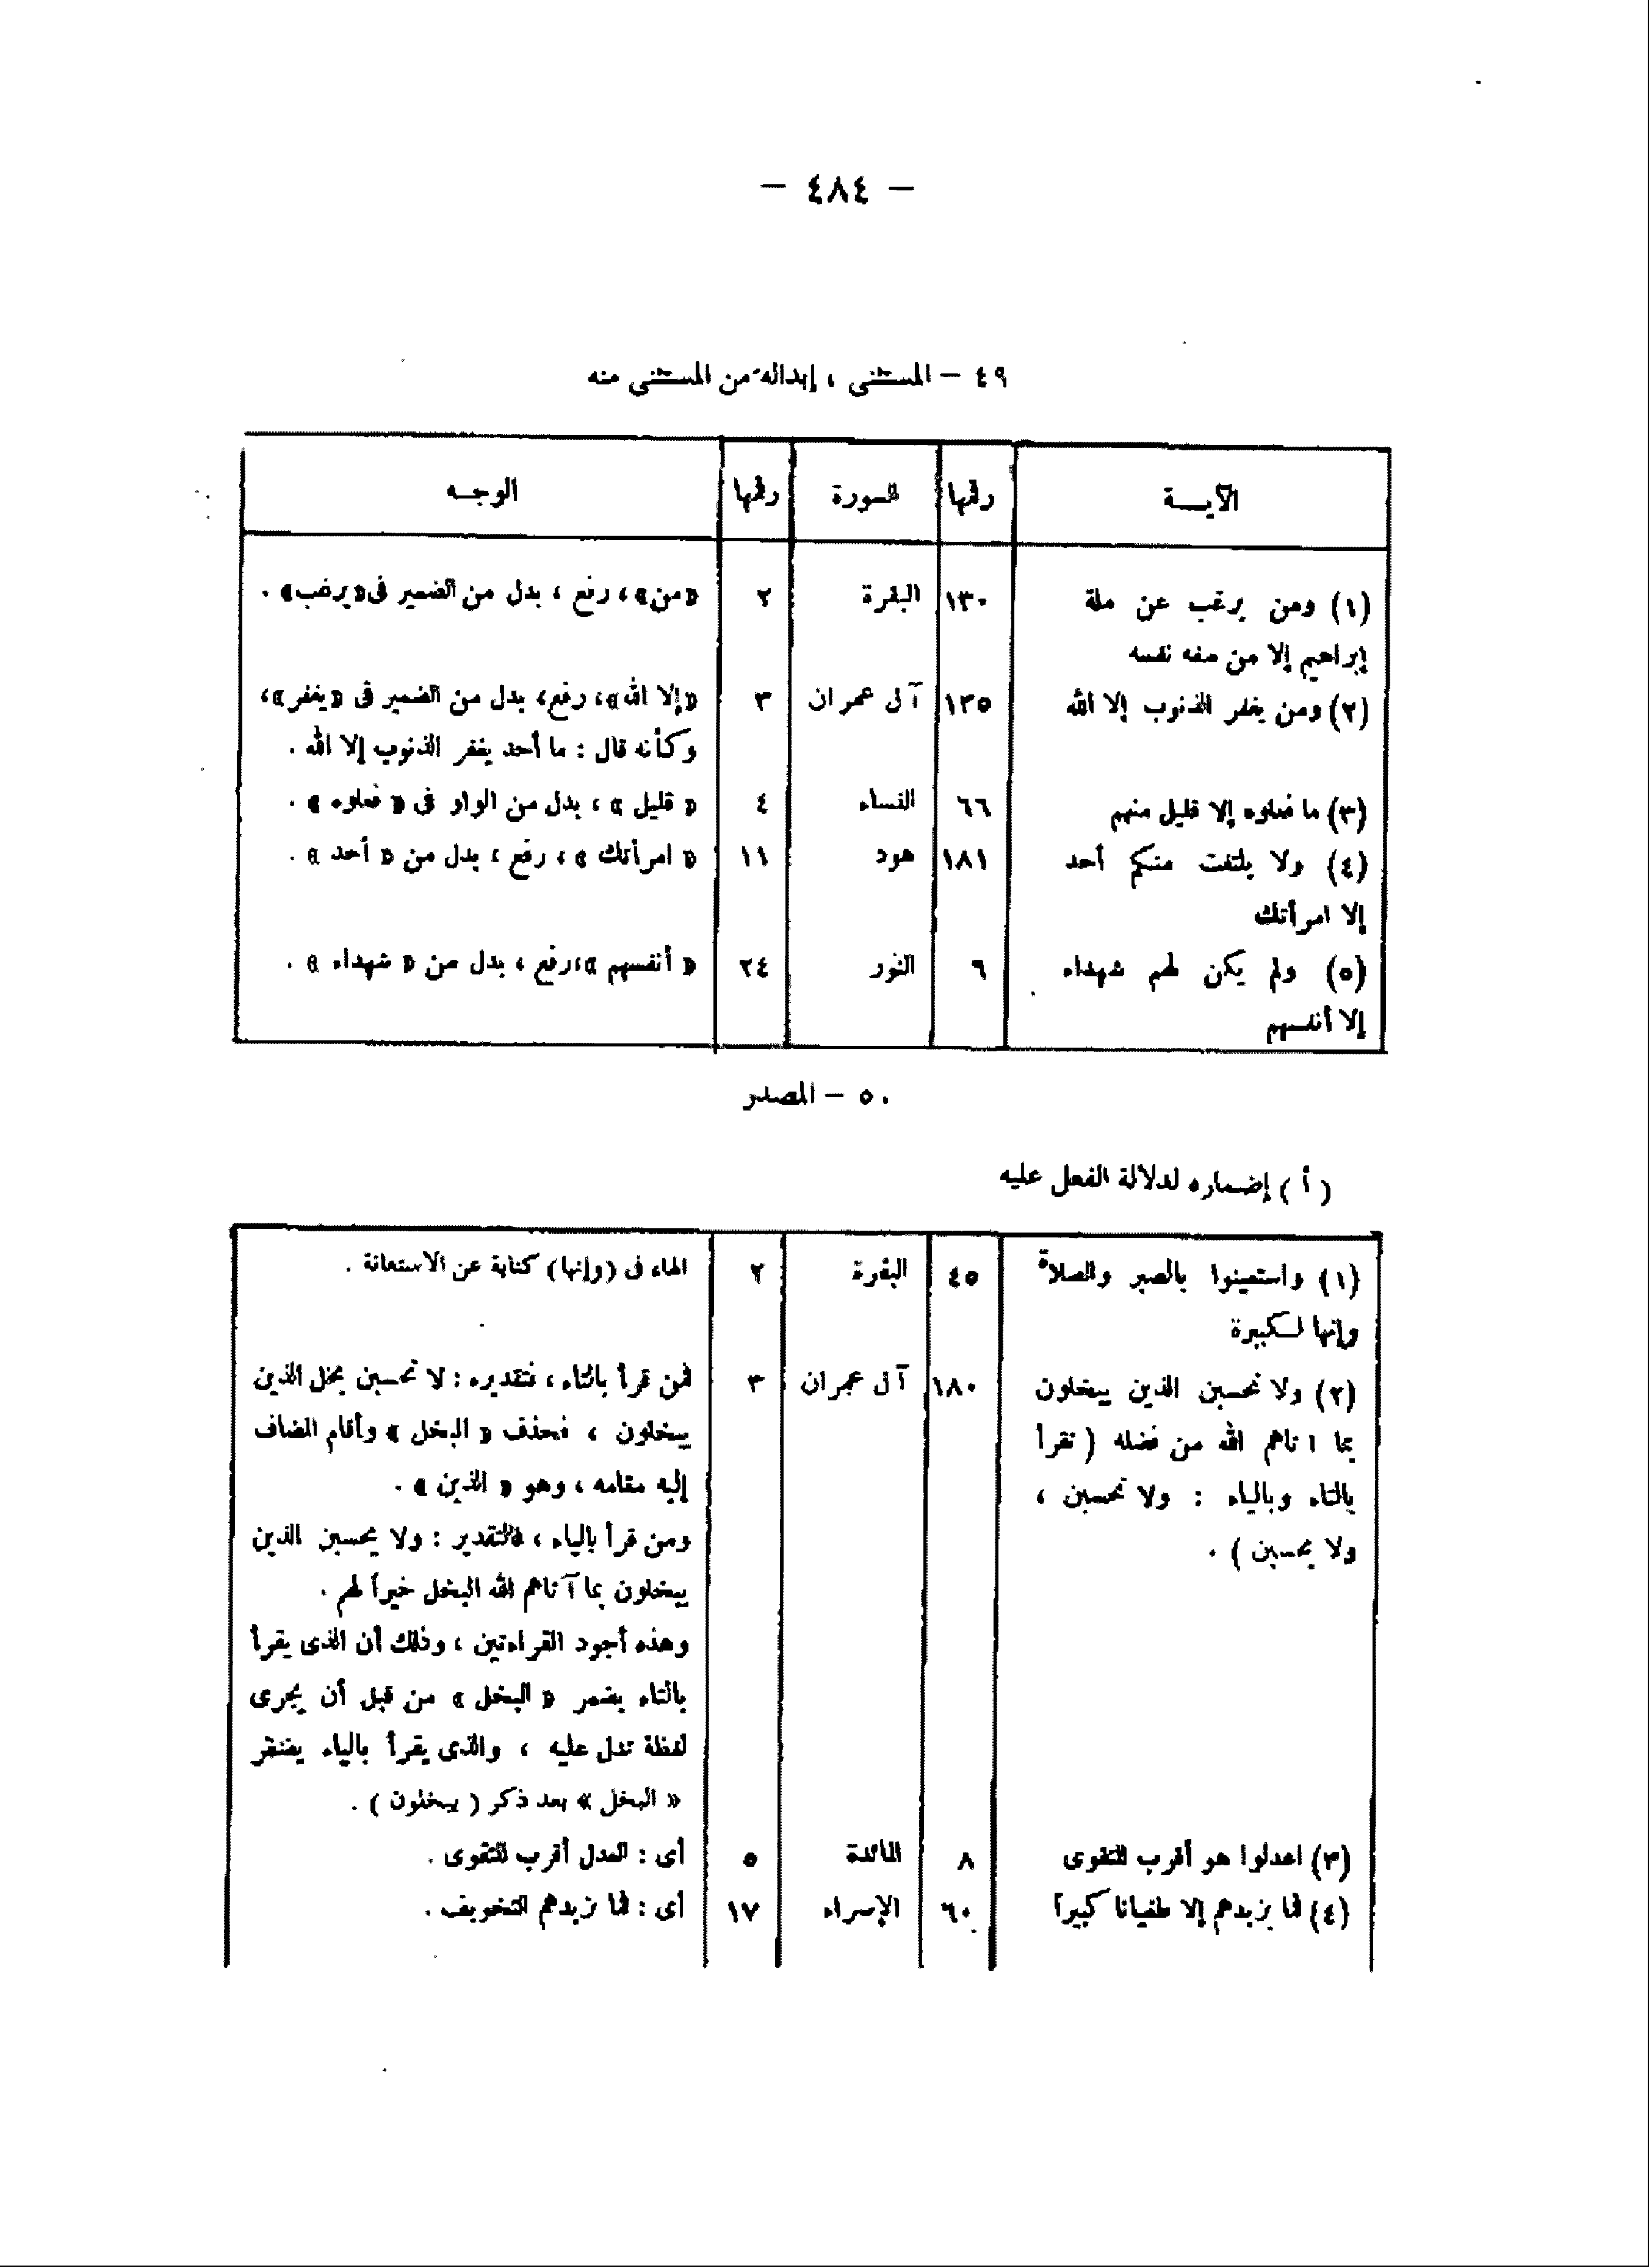 – ٤٨٤ –
٤٩ – المستثنى ، إبداله من المستثنى منه
الآيـــة رقمها السورة رقمها الوجـــه
(١) ومن يرغب عن ملة ١٣٠ البقرة ٢ «من» ، رفع ، بدل من الضمير فى«يرغب» .
إبراهيم إلا من سفه نفسه
(٢) ومن يغفر الذنوب إلا الله ١٣٥ آل عمران ٣ «إلا الله» ، رفع، بدل من الضمير فى «يغفر» ،
وكأنه قال : ما أحد يغفر الذنوب إلا الله .
(٣) ما فعلوه إلا قليل منهم ٦٦ النساء ٤ « قليل » ، بدل من الواو فى « فعلوه » .
(٤) ولا يلتفت منكم أحد ١٨١ هود ١١ « امرأتك » ، رفع ، بدل من « أحد » .
إلا امرأتك
(٥) ولم يكن لهم شهداء ٦ النور ٢٤ « أنفسهم »،رفع ، بدل من « شهداء » .
إلا أنفسهم
٥٠ – المصدر
( أ ) إضماره لدلالة الفعل عليه
(١) واستعينوا بالصبر والصلاة ٤٥ البقرة ٢ الهاء فى (وإنها) كناية عن الاستعانة .
وإنها لكبيرة
(٢) ولا تحسبن الذين يبخلون ١٨٠ آل عمران ٣ فمن قرأ بالتاء ، فتقديره : لا تحسبن بخل الذين
بما آتاهم الله من فضله ( تقرأ يبخلون ، فحذف « البخل » وأقام المضاف
بالتاء وبالياء : ولا تحسبن ، إليه مقامه ، وهو « الذين » .
ولا يحسبن ) . ومن قرأ بالياء ، فالتقدير : ولا يحسبن الذين
يبخلون بما آتاهم الله البخل خيراً لهم .
وهذه أجود القراءتين ، وذلك أن الذى يقرأ
بالتاء يضمر « البخل » من قبل أن يجرى
لفظة تدل عليه ، والذى يقرأ بالياء يضمر
« البخل » بعد ذكر ( يبخلون ) .
(٣) اعدلوا هو أقرب للتقوى ٨ المائدة ٥ أى : العدل أقرب للتقوى .
(٤) فما يزيدهم إلا طغيانا كبيراً ٦٠ الإسراء ١٧ أى : فما يزيدهم التخويف .